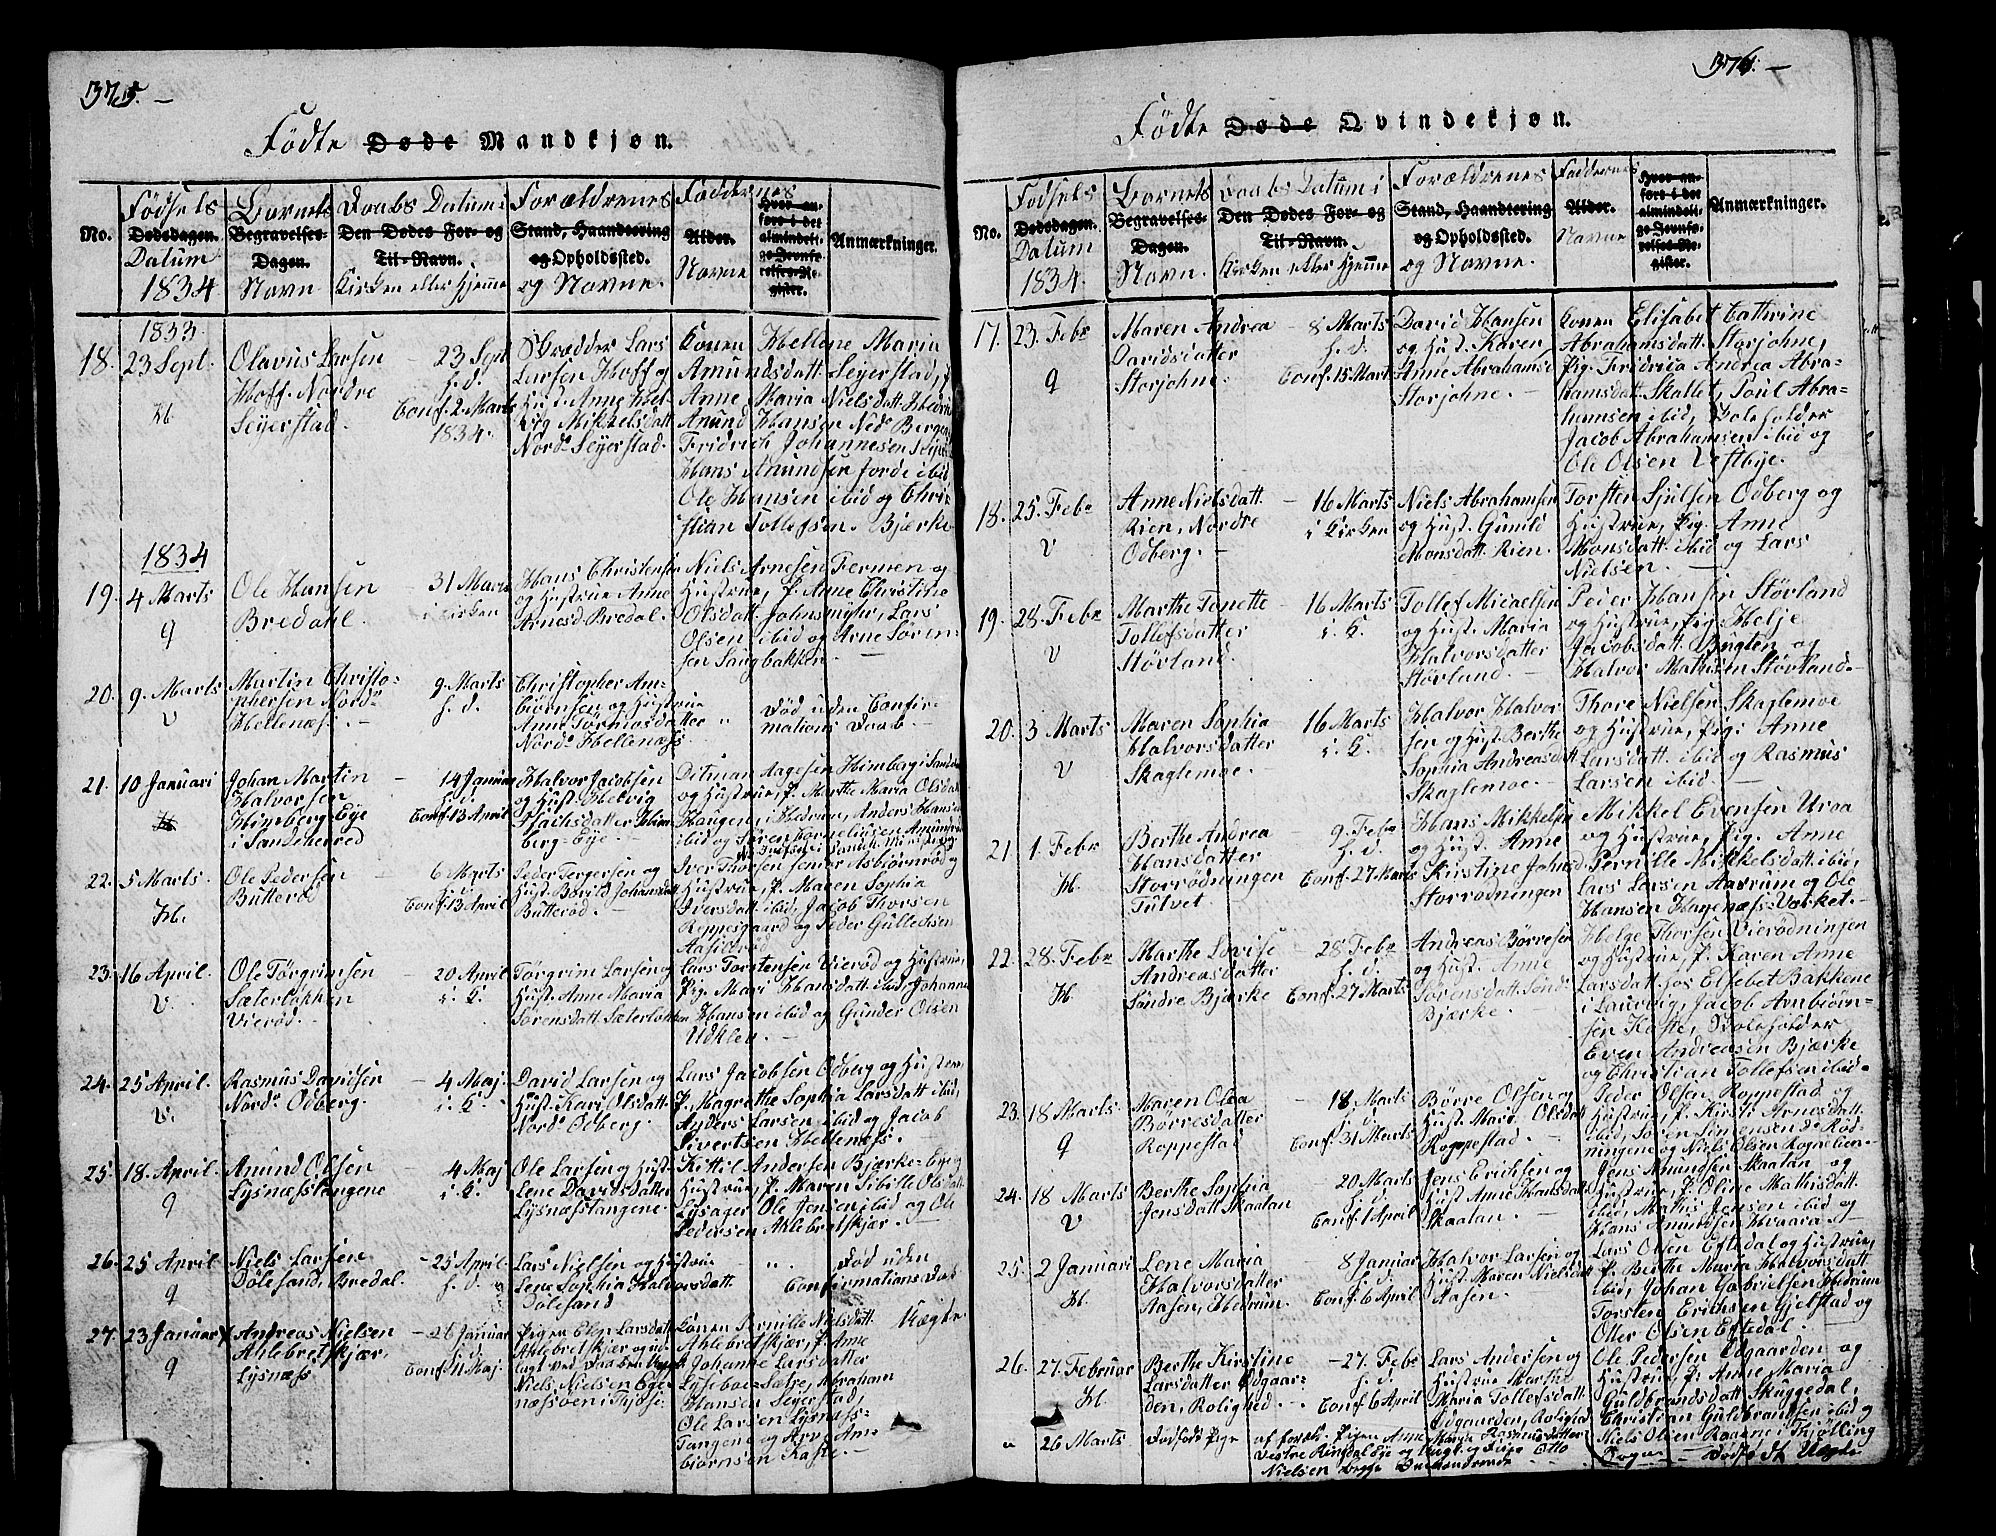 375. –
Födte Døde Mandkjøn.
No.
Födsels
Dødsdagen.
Datum
1834
Barnets
Begravelses-
Dagen.
Navn
Daabs Datum i
Den Dødes For- og
Til-Navn.
Kirken eller Hjemme
Forældrenes
Stand, Haandtering
og Opholdssted.
og Navne.
Faddernes
Alder.
Navne
Hvor an-
føre i det
almindeli-
ge Jevnfø-
relses-Re-
gister.
Anmærkninger.
1833.
18. 23 Sept.
H
Olavus Larsen
Hoff Nordre
Seyerstad.
23 Sept
h. d.
Conf. 2 Marts
1834.
Skrædder Lars
Larsen Hoff og
Hust. Anne Hel-
vig Mikkelsdatt
Nord. Seyerstad.
Konen Hellene Maria
Amundsdatt. Seyerstad, P.
Anne Maria Nielsdatt. Hedrum
Amund Hansen Ned. Berge
Fridrich Johannesen
Hans Amundsen Jorde ibid
Ole Hansen ibid og Chri-
stian Tollefsen. Bjerke
1834
19. 4 Marts
9
Ole Hansen
Bredahl.
31 Marts
i Kirken
Hans Christensen
og Hustrue Anne
Arnesd. Bredal.
Niels Arnesen Fermen og
Hustrue, P. Anne Christine
Olsdatt. Johnsmyhr, Lars
Olsen ibid og Arne Sören-
sen Saugbakken. –
20. 9. Marts
V
Martin Christo-
phersen Nord.
Hellenæs. –
9. Marts
h. d.
Christopher Am-
biörnsen og Hustrue
Anne Tormordatter
Nord. Hellenæs.
"
Död uden Confir-
mations Daab. –
21. 10 Januari
H
Johan Martin
Halvorsen
Himberg-Eye
i Sandeherred
14 Januar
h. d.
Conf. 13 April
Halvor Jacobsen
og Hust. Helvig
Isachsdatter Him-
berg-Eye. –
Ditman Aagesen Himberg i Sandeh.
og Hustrue, P. Marthe Maria Olsdatt.
Haugen i Hedrum, Anders Hansen
ibid og Sören Corneliusen Amundröd
22. 5 Marts.
H.
Ole Pedersen
Butteröd
6 Marts
h. d.
Conf. 13 April
Peder Torgersen og
Hust. Borild Johansdatt
Butteröd. –
Iver Thorsen Sönder Asbiörnröd og
Hustrue, P. Maren Sophia
Iversdatt. ibid, Jacob Thorsen
Roppesgaard og Peder Gullechsen
Aasildröd
23. 16 April.
V.
Ole Törgrimsen
Sæterlökken
Vieröd. –
20 April
i. K.
Törgrim Larsen og
Hust. Anne Maria
Sörensdatt. Sæterlökken
Lars Torstensen Vieröd og Hustrue,
Pig. Mari Hansdatt. ibid, Johannes
Hansen ibid og Gunder Olsen
Udklev. –
24. 25 April.
V.
Rasmus Davidsen
Nord. Odberg.
4 Maj.
i. K.
David Larsen og
Hust. Kari Olsdatt.
Nord. Odberg.
Lars Jacobsen Odberg og Hustrue,
P. Magrethe Sophia Larsdatt. ibid,
Anders Larsen ibid og Jacob
Sivertsen Hellenæs. –
25. 18. April.
9
Amund Olsen
Lysnæsstangene
4 Maj
i. K.
Ole Larsen og Hust.
Lene Davidsdatter
Lysnæsstangene.
Kittil Andersen Bjerke-Eye og
Hustrue, P. Maren Sibille Olsdatt.
Lysager Ole Jensen ibid og Ole
Pedersen Ahlebretskjær. –
26. 25 April
9
Niels Larsen
Dölesand, Bredal.
25 April
h. d.
Lars Nielsen og Hustrue
Lene Sophia Halvorsdatt.
Dölesand
".
Död uden
Confirmations-Daab
27. 23 Januar
9
Andreas Nielsen
Ahlebretskjær,
Lysnæss
26 Januar
h. d.
Conf. 11 Maj.
Pigen Elen Larsdatt.
Ahlebretskjær og ud-
lagt ved Daaben
Niels Nielsen Eye-
næssven i Thjöse.
Konen Pernille Nielsdatt.
Ahlebretskjær, P. Anne
Johanne Larsdatter
Lyseboe-Sætre, Abraham
Hansen Seyerstad,
Ole Larsen Lysnæss-
Tangene og Arve Am-
biörnsen Kaste. –
Uægte.
376. –
Födte Døde Qvindekjøn.
No.
Födsels
Dødsdagen.
Datum
1834.
Barnets
Begravelses-
Dagen.
Navn.
Daabs Datum i
Den Dødes For- og
Til-Navn.
Kirken eller Hjemme
Forældrenes
Stand, Haandtering
og Opholdssted.
og Navne.
Faddernes
Alder.
Navne
Hvor an-
føre i det
almindeli-
ge Jevnfø-
relses-Re-
gister.
Anmærkninger.
17. 23. Febr
9
Maren Andrea
Davidsdatter
Storjohne.
8 Marts
h. d.
Conf. 15 Marts
David Hansen
og Hust. Karen
Anne Abrahamsd
Storjohne. –
Konen Elisabet Cathrine
Abrahamsdatt. Storjohne,
Pig. Fridricia Andrea Abra-
hamsdatt. Skallet, Poul Abra-
hamsen ibid, Boleholder
Jacob Abrahamsen ibid og
Ole Olsen Vestbye. –
18. 25. Febr
V
Anne Nielsdatt.
Rien, Nordre
Odberg. –
16 Marts
i Kirken
Niels Abrahamsen
og Hust. Gunild
Monsdatt. Rien.
Torsten Sjulsen Odberg og
Hustrue, Pig. Anne
Monsdatt. ibid og Lars
Nielsen. –
19. 28. Febr
V
Marthe Tonette
Tollefsdatter
Störland.
16 Marts
i. K.
Tollef Micaelsen
og Hust. Maria
Halvorsdatter
Störland. –
Peder Hansen Störland
og Hustrue, Pig. Helje
Jacobsdatt. Bugten og
Halvor Mathisen Störland. –
20. 3 Marts
V
Maren Sophia
Halvorsdatter
Skaglemoe.
16 Marts
i. K.
Halvor Halvor
sen og Hust. Berthe
Sophia Andreasdatt
Skaglemoe. –
Thore Nielsen Skaglemoe
og Hustrue, Pig. Anne
Larsdatt. ibid og Rasmus
Larsen ibid. –
21 1. Febr
H.
Berthe Andrea
Hansdatter
Storrödningen
Tutvet.
9. Febr
h. d.
Conf. 27 Marts
Hans Mikkelsen
og Hust. Anne
Kirstine Johnsd
Storrodningen
Mikkel Evensen Uroa
og Hustrue, Pig. Anne
Pernille Mikkelsdatt. ibid,
Lars Larsen Aasrum og Ole
Hansen Hagenæss-Værket. –
22. 28. Febr
H.
Marthe Lovise
Andreasdatter
Söndre Bjerke
28 Febr
h. d.
Conf. 27 Marts
Andreas Börresen
og Hust. Anne
Sörensdatt. Sönd
Bjærke. –
Helge Thorsen Vierödningen
og Hustrue, P. Karen Anne
Larsdatt. hos Elsebet Bakkene
i Laurvig, Jacob Ambiörn-
sen Kaste, Boleholder
Even Andreasen Bjærke
og Christian Tollefsen ibid. –
23. 18 Marts
9
Maren Olea
Börresdatter
Roppestad
18 Marts
h. d.
Conf. 31 Marts
Börre Olsen og
Hust. Mari Olsdatt
Roppestad. –
Peder Olsen Roppestad og
Hustrue, P. Kirsti Arnesdatt.
ibid, Sören Simensen d. Röd-
ningene og Niels Olsen
24. 18 Marts
V
Berthe Sophia
Jensdatt Skaatan
20 Marts
h. d.
Conf. 1 April
Jens Erichsen og
Hust. Anne Hansdatt
Skaatan. –
Jens Amundsen Skaatan og
Hustrue, P. Oline Mathisdatt.
ibid, Mathis Jensen ibid og
Hans Amundsen Kvaara. –
25. 2 Januari
H.
Lene Maria
Halvorsdatter
Aasen, Hedrum.
8 Januar
h. d.
Conf. 6 April
Halvor Larsen og
Hust. Maren Nielsdatt
Aasen.
Lars Olsen Eftedal og Hustrue,
P. Berthe Maria Halvorsdatt
ibid, Johan Gabrielsen Hedrum
Torsten Erichsen Gjelstad og
Otter Olsen Eftedal.
26. 27. Februar
H.
Berthe Kirstine
Larsdatter Odgaar-
den, Rolighed.
27. Febr
h. d.
Conf. 6 April
Lars Andersen og
Hustrue Marthe
Maria Tollefsdatt.
Odgaarden, Rolighed
Ole Pedersen Odgaarden og
Hustrue, P. Anne Maria
Guldbrandsdatt Skuggedal,
Christian Guldbrandsen ibid og
Niels Olsen Raanne i Thjölling
Sogn –
" 26 Marts
Dödföd Pige
af foræl. Pigen Anne Marie Rasmusdatter
Vestre Ringdal Eye og udlagt
Nielsen begge
Dödfödt Uægte